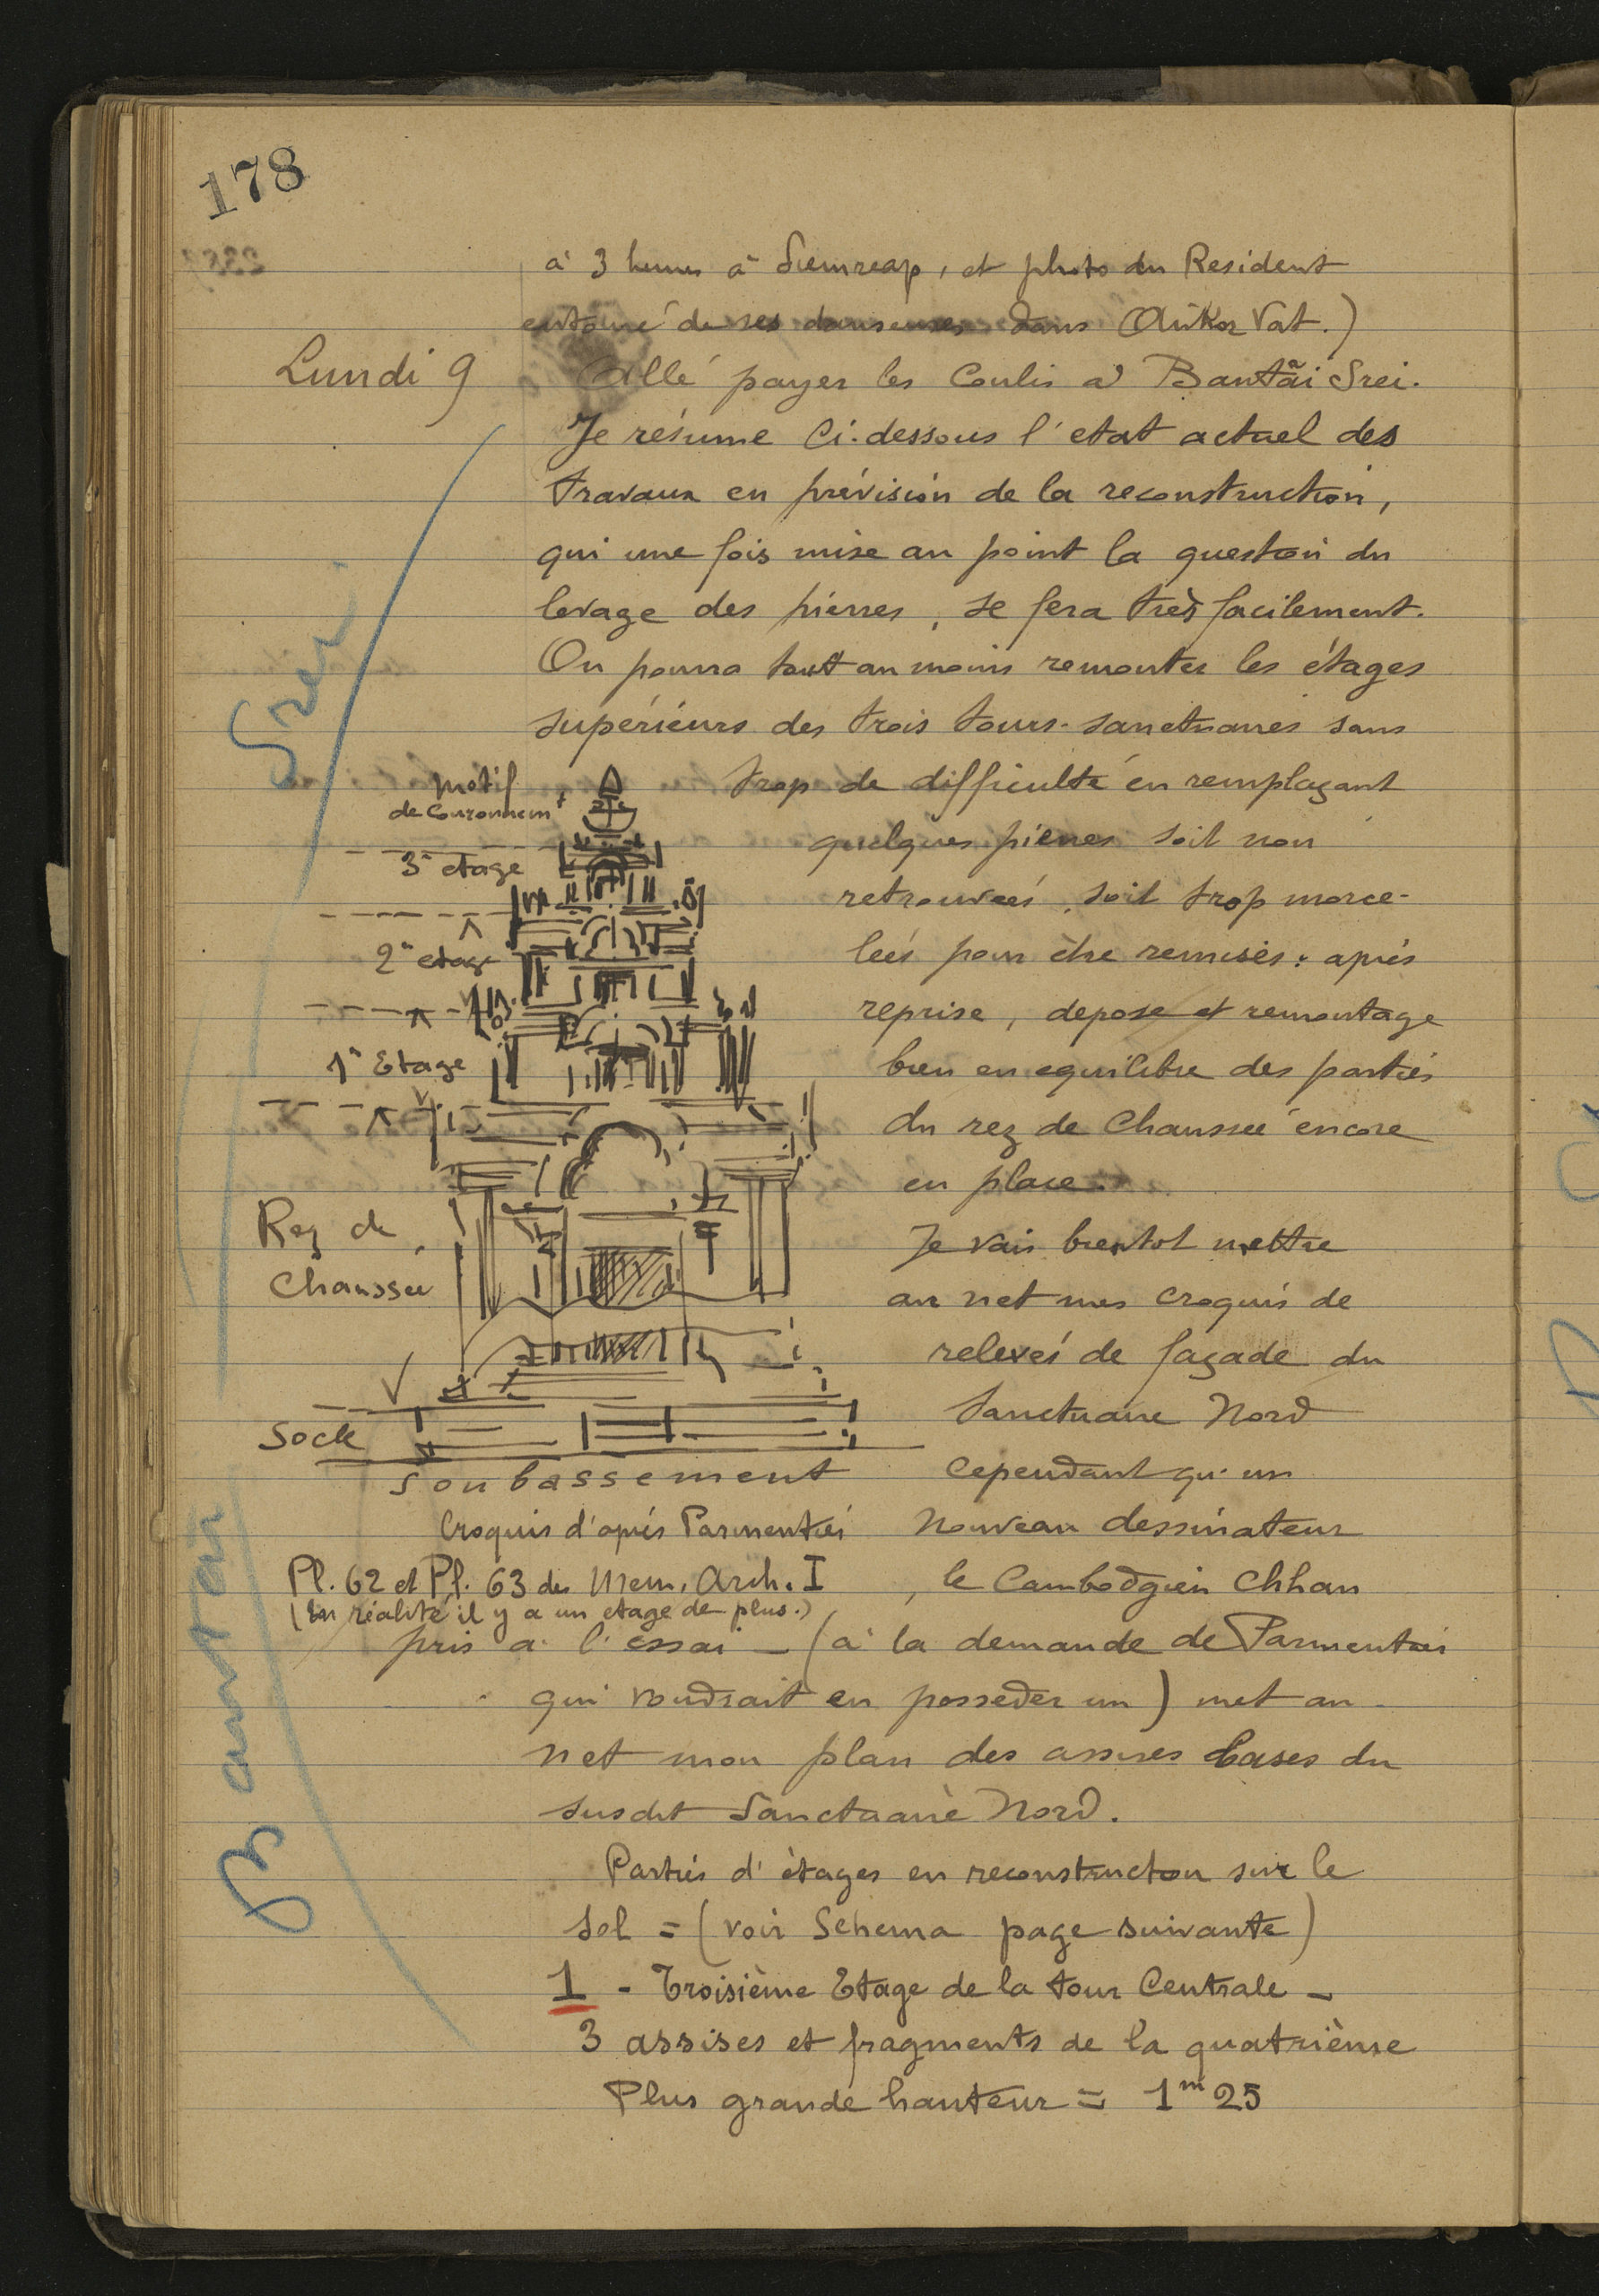 178
à 3 heures à Siemreap, et photo du Resident
entouré de ses danseuses dans Ankor Vat.)
Lundi 9
Allé payer les Coulis à Bantãi Srei.
Je résume Ci-dessous l'etat actuel des
travaux en prévision de la reconstruction,
qui une fois mise au point la question du
levage des pierres, se fera très facilement.
On pourra tout au moins remonter les étages
supérieurs des trois tours-sanctuaires sans
trop de difficulté en remplaçant
quelques pierres soit non
retrouvées, soit trop morce-
lées pour être remises: après
reprise, depose et remontage
bien en equilibre des parties
du rez de Chaussée encore
en place.
Je vais bientot mettre
au net mes croquis de
relevés de façade du
Sanctuaire Nord
cependant qu'un
nouveau dessinateur
, le Cambodgien Chhan
motif
de Couronnemt
3e etage
2e etage
1e Etage
Rez de
Chaussée
Socle
Soubassement
Croquis d'après Parmentier
Pl. 62 et Pl. 63 des Mem. Arch. I
(En réalité il y a un etage de plus.)
pris a l'essai - (à la demande de Parmentier
qui voudrait en posseder un) met au
net mon plan des assises bases du
susdit Sanctuaire Nord.
Parties d'étages en reconstruction sur le
sol = (voir Schema page suivante)
1 - Troisième Etage de la tour Centrale -
3 assises et fragments de la quatrième
Plus grande hauteur = 1m 25
Bantãi Srei